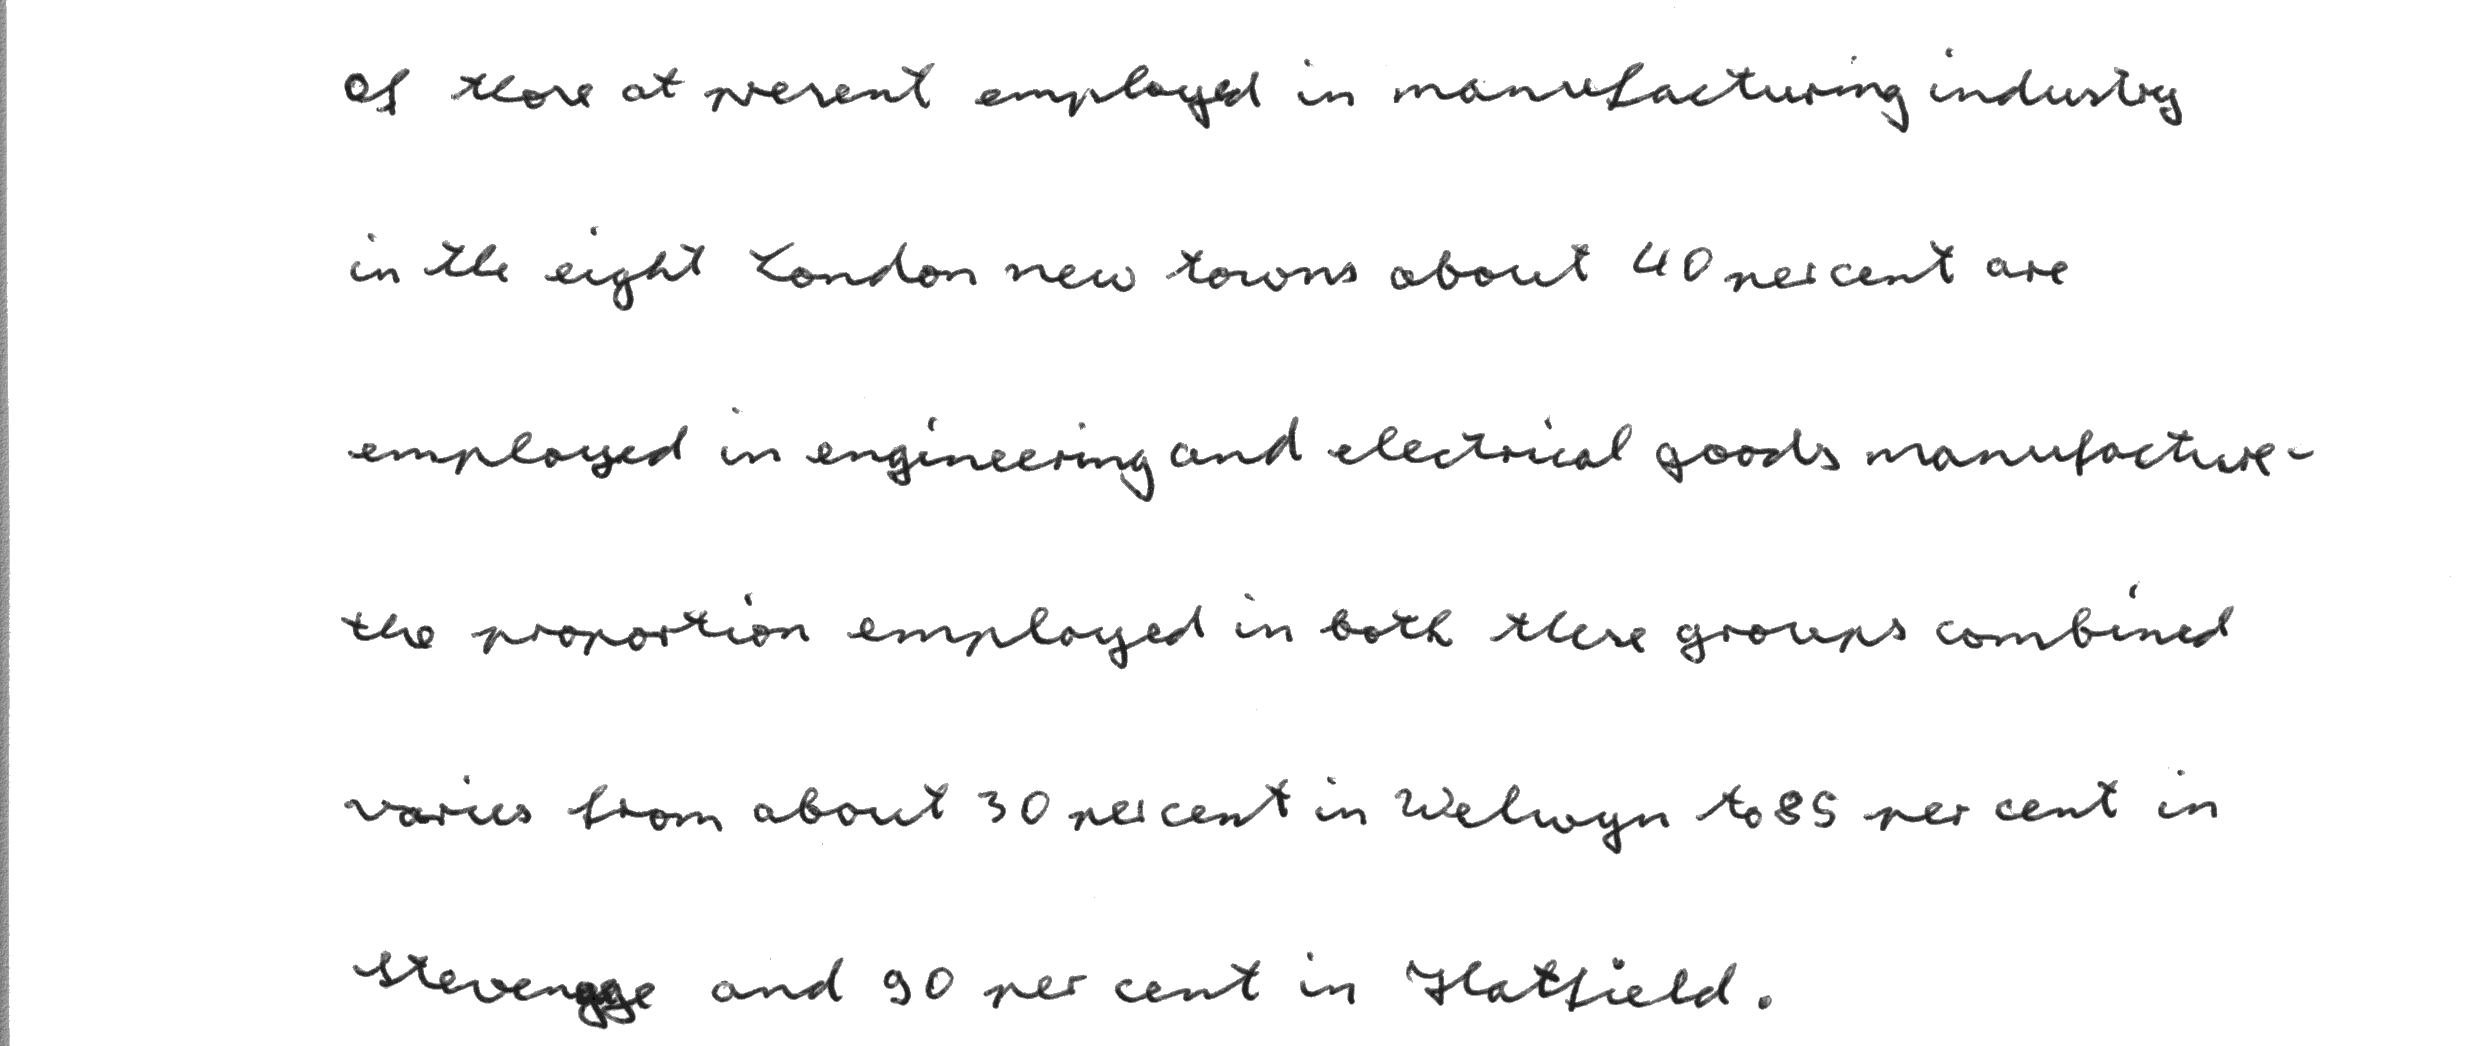 Of those at present employed in manufacturing industry
in the eight London new towns about 40 per cent are
employed in engineering and electrical goods manufacture-
the proportion employed in both these groups combined
varies from about 30 per cent in Welwyn to 85 per cent in
Stevenage and 90 per cent in Hatfield.